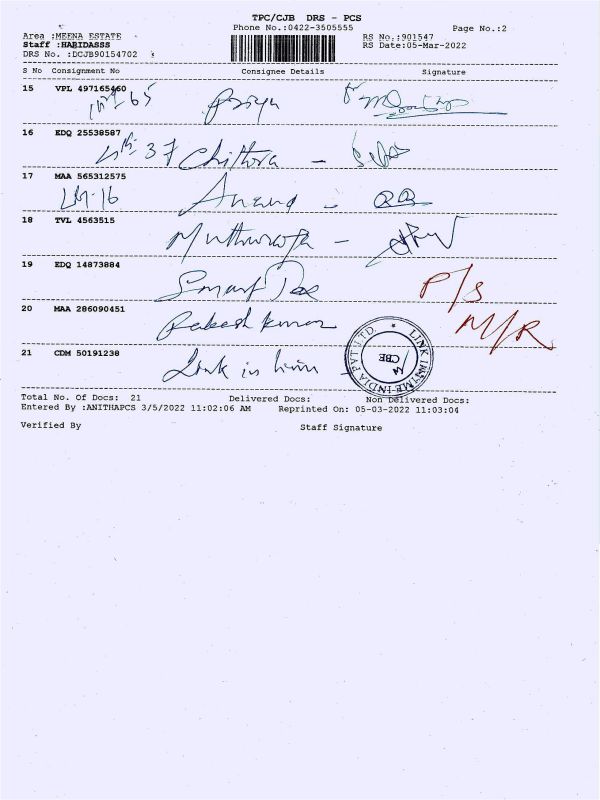 TPC/CJB DRS - PCS
Phone No.:0422-3505555 Page No.:2
Area :MEENA ESTATE RS No.:901547
Staff :HARIDASSS RS Date:05-Mar-2022
DRS No. :DCJB90154702
S No Consignment No Consignee Details Signature
15 VPL 497165460
65 Priya
16 EDQ 25538587
37 Chithra -
17 MAA 565312575
LM-16 Anand -
18 TVL 4563515
Muthuraja -
19 EDQ 14873884
Smart P/S
20 MAA 286090451
Rakesh Kumar M/R
21 CDM 50191238
Link in
LINK INTIME INDIA PVT LTD.
CBE
Total No. Of Docs: 21 Delivered Docs: Non Delivered Docs:
Entered By :ANITHAPCS 3/5/2022 11:02:06 AM Reprinted On: 05-03-2022 11:03:04
Verified By Staff Signature